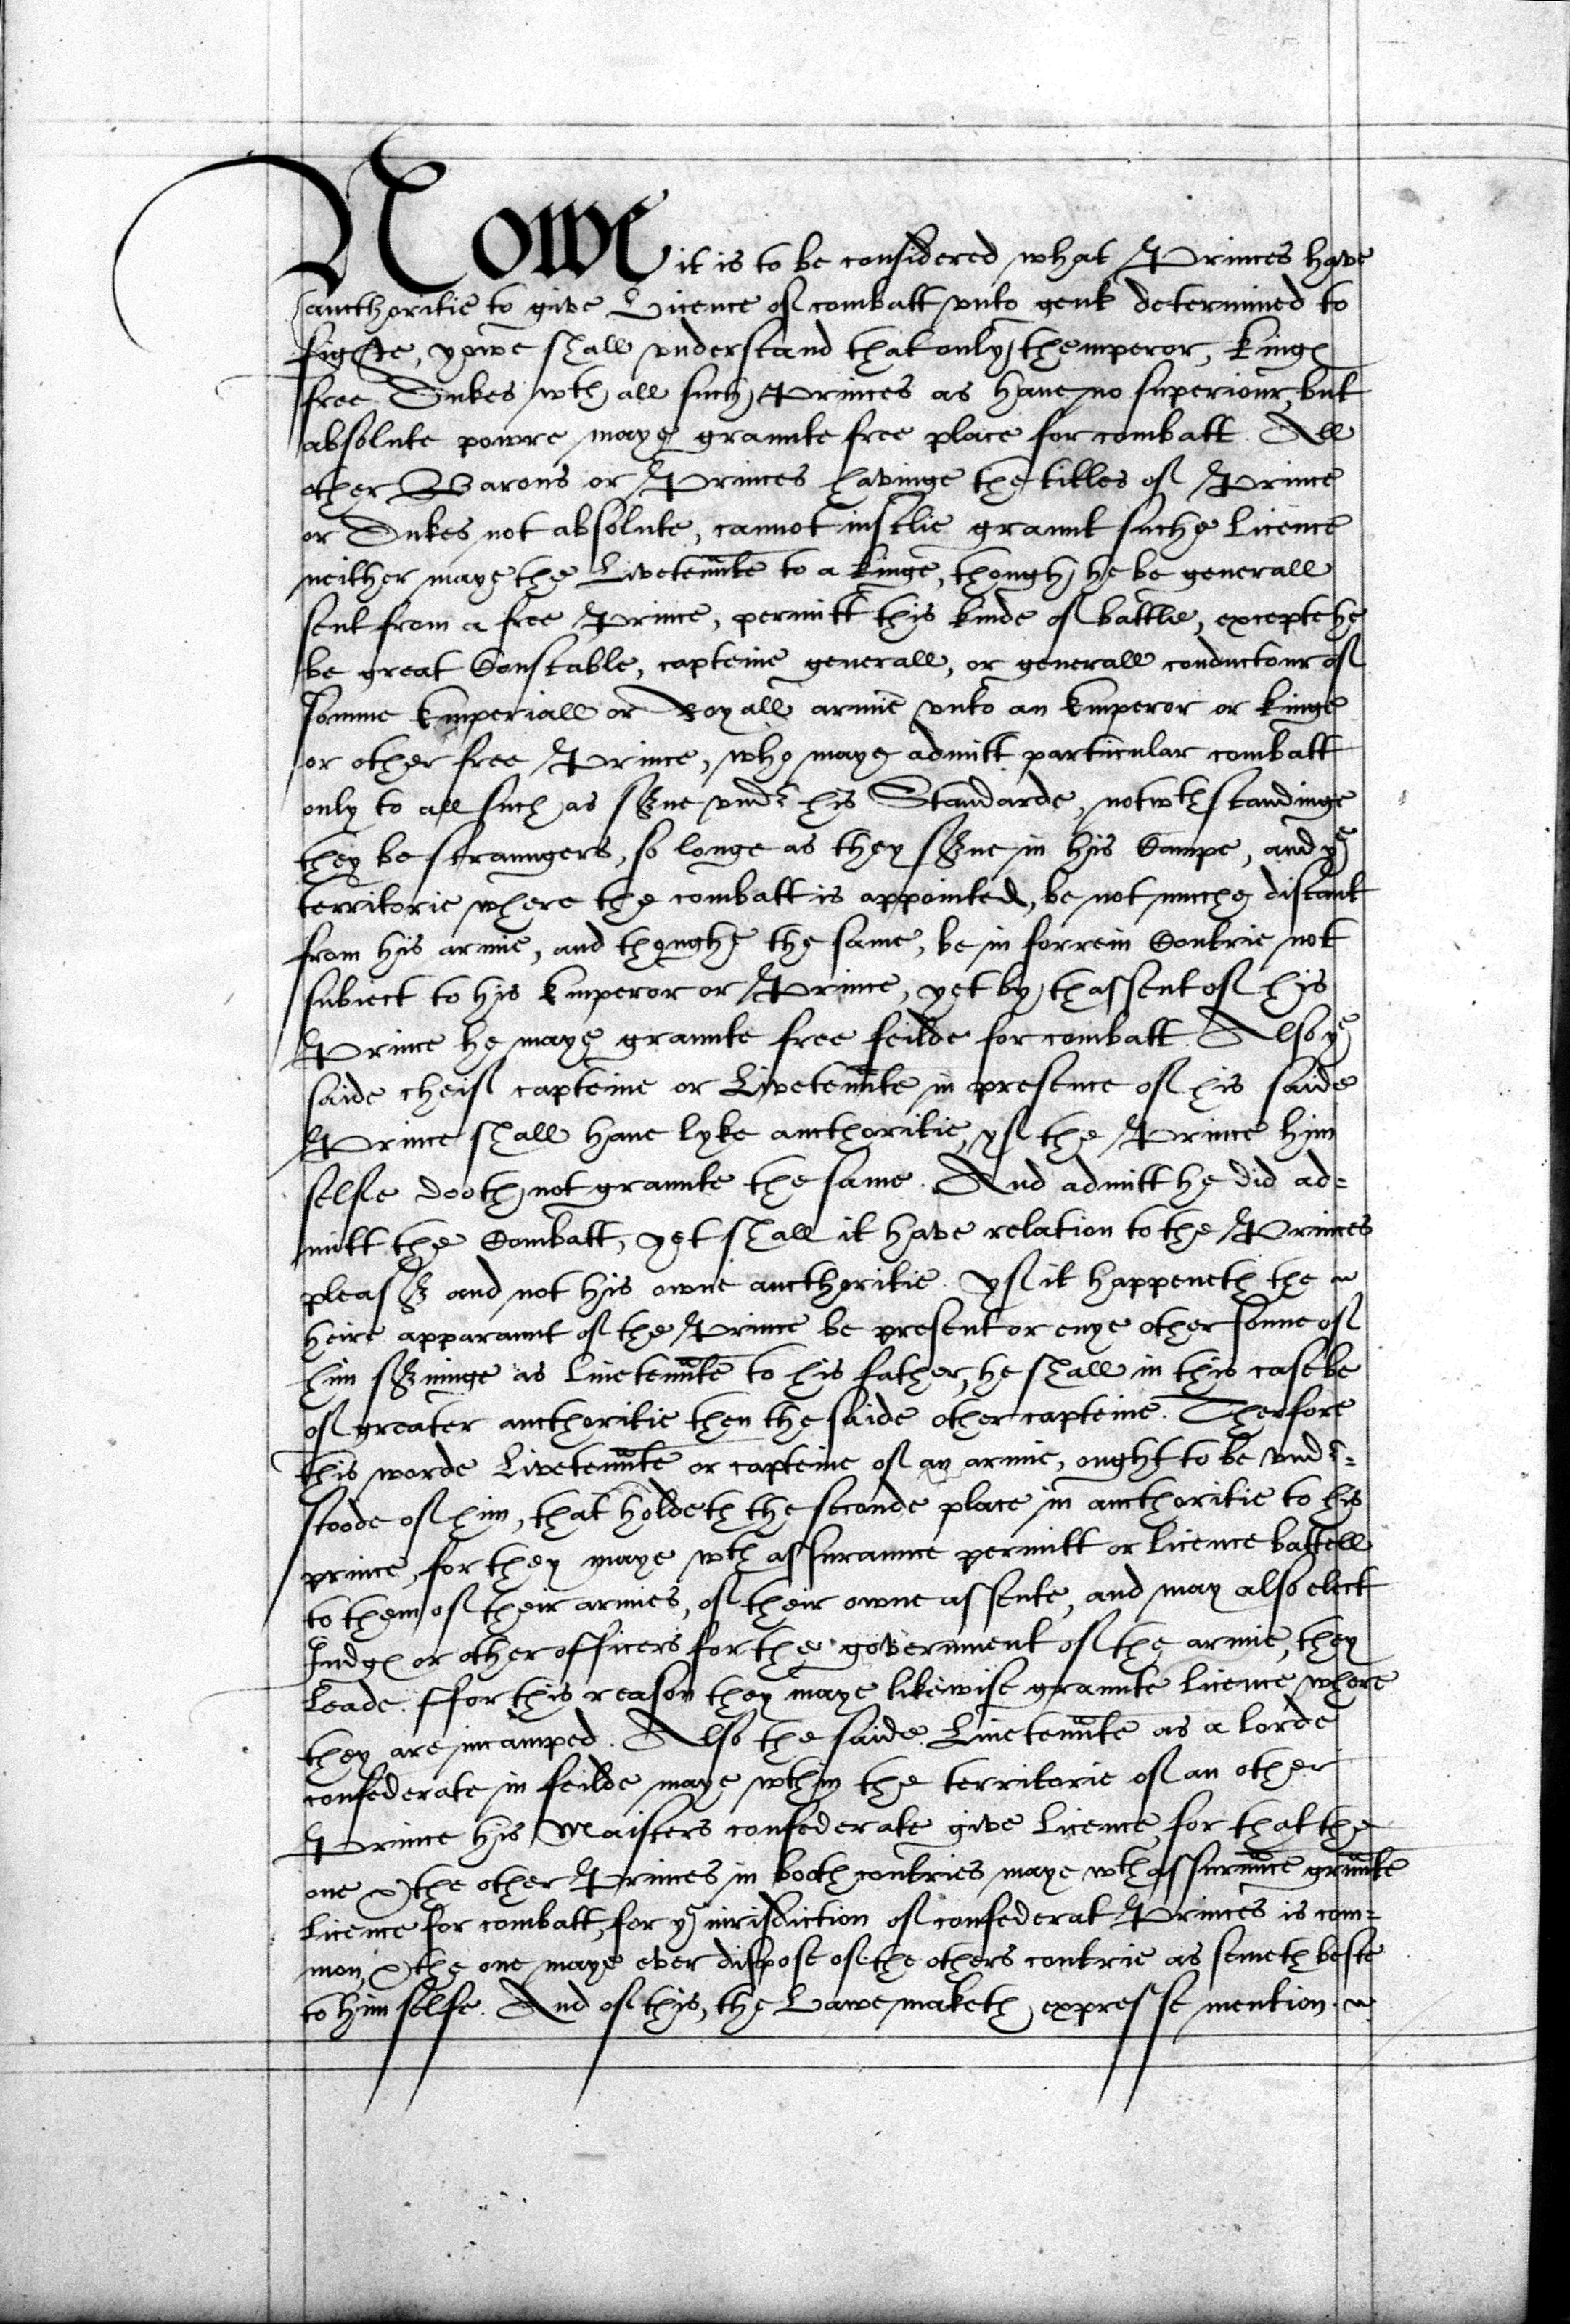 Nowe it is to be considered what Princes have
aucthoritie to give Licence of combatt vnto gent determined to
fighte, yowe shall vnderstand that only themperor, kinges
free Dukes wth all such Princes as haue no superiour, but
absolute powre maye graunte free place for combatt. All
other Barons or Princes havinge the titles of Prince
or Dukes not absolute, cannot iustlie graunt suche licence
neither maye the Livetennte to a kinge, though he be generall
sent from a free Prince, permitt this kinde of battle, excepte he
be great Constable, capteine generall, or generall conductour of
somme Emperiall or Royall armie vnto an Emperor or kinge
or other free Prince, who maye admitt particular combatt
only to all such as serue vnder his Standarde, notwthstandinge
they be straungers, so longe as they serue in his Campe, and ye
territorie where the combatt is appointed, be not muche distant
from his armie, and thoughe the same, be in forrein Contrie not
subiect to his Emperor or Prince, yet by thassent of his
Prince he maye graunte free feilde for combatt. Also ye
saide cheif capteine or Livetennte in presence of his saide
Prince shall haue lyke aucthoritie, yf the Prince him
selfe dooth not graunte the same. And admitt he did ad=
mitt the Combatt, yet shall it have relation to the Princes
pleasser and not his owne aucthoritie. Yf it happeneth the
heire apparaunt of the Prince be present or enye other sonne of
him seruinge as liuetennte to his father, he shall in this case be
of greater aucthoritie then the saide other capteine. Therfore
this worde Livetennte or capteine of an armie, ought to be vnder=
stoode of him, that holdeth the seconde place in aucthoritie to his
prince, for they maye wth assuraunce permitt or licence battell
to them of their armies, of their owne assente, and may also elect
Iudges or other officers for the government of the armie, they
leade. ffor this reason they maye likewise graunte licence, where
they are incamped. Also the saide Liuetennte as a lorde
confederate in feilde maye wthin the territorie of an other
Prince his Maisters confederate give licence, for that the
one & the other Princes in booth contries maye wth assurance graunte
licence for combatt, for ye iurisdiction of confederat Princes is com=
mon, & the one maye ever dispose of the others contrie as semeth beste
to him selfe. And of this, the Lawe maketh expresse mention.